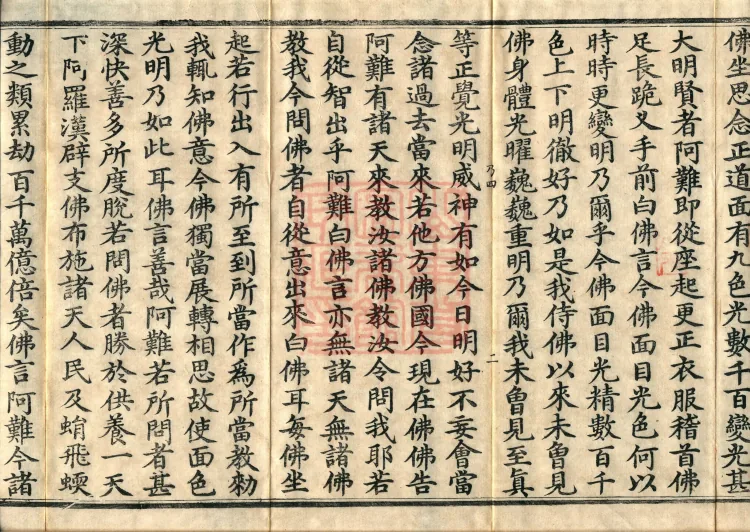 佛坐思念正道面有九色光數千百變光甚
大明賢者阿難即從座起更正衣服稽首佛
足長跪叉手前白佛言今佛面目光色何以
時時更變明乃爾乎今佛面目光精數百千
色上下明徹好乃如是我侍佛以來未曾見
佛身體光曜巍巍重明乃爾我未曾見至眞
乃四 二
等正覺光明威神有如今日明好不妄會當
念諸過去當來若他方佛國今現在佛佛告
阿難有諸天來教汝諸佛教汝令問我耶若
自從智出乎阿難白佛言亦無諸天無諸佛
教我今問佛者自從意出來白佛耳每佛坐
起若行出入有所至到所當作爲所當教勑
我輒知佛意今佛獨當展轉相思故使面色
光明乃如此耳佛言善哉阿難若所問者甚
深快善多所度脫若問佛者勝於供養一天
下阿羅漢辟支佛布施諸天人民及蜎飛蝡
動之類累劫百千萬億倍矣佛言阿難今諸